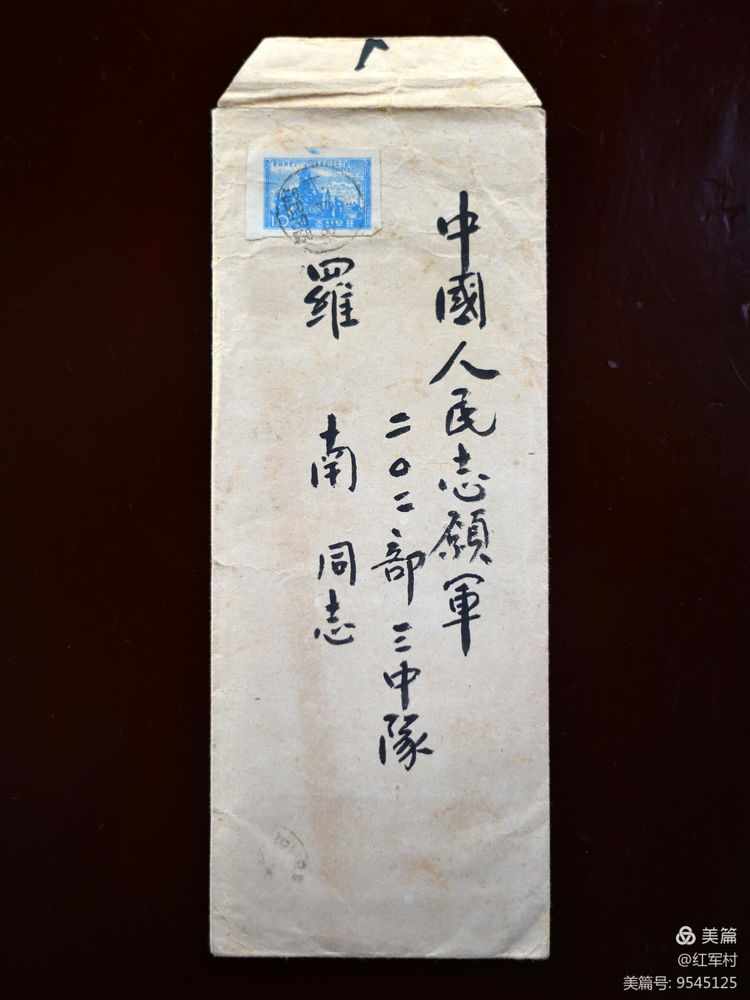 中國人民志願軍
二〇二部三中隊
羅南同志
美篇
@红军村
美篇号: 9545125